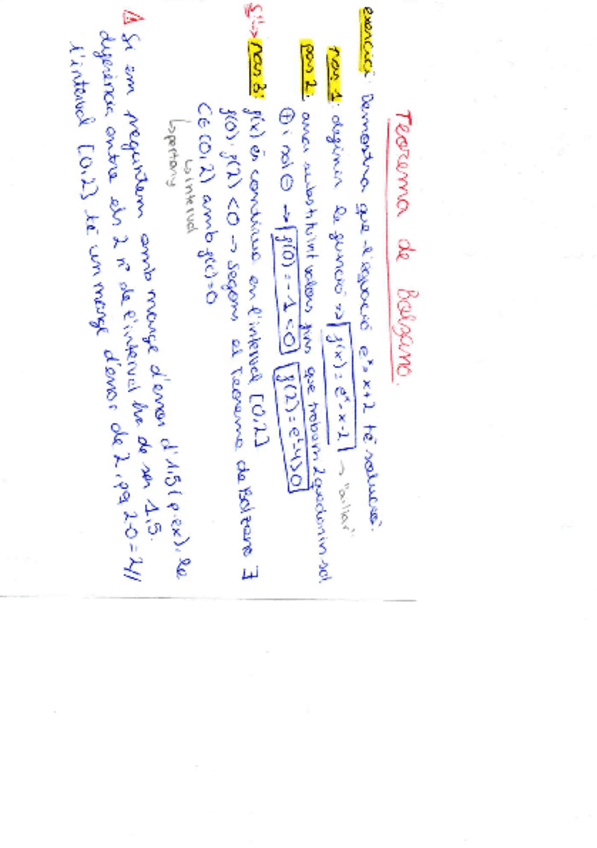 Teorema de Bolzano.
exercici: Demostra que l'equació eˣ = x+2 té solució.
pas 1: definir la funció ⇒ f(x) = eˣ - x - 2 → "aïllar"
pas 2: anar substituint valors fins que trobem 2 que donin sol
⊕ i sol ⊖ → f(0) = -1 < 0 f(2) = e² - 4 > 0
pas 3: f(x) és contínua en l'interval [0,2]
f(0) · f(2) < 0 → segons el Teorema de Bolzano ∃
C ∈ (0,2) amb f(c) = 0
↳ interval
↳ pertany
⚠ Si em pregunten amb marge d'error d'1,5 (p.ex), la
diferència entre els 2 nº de l'interval ha de ser 1,5.
l'interval [0,2] té un marge d'error de 2, pq 2-0 = 2//